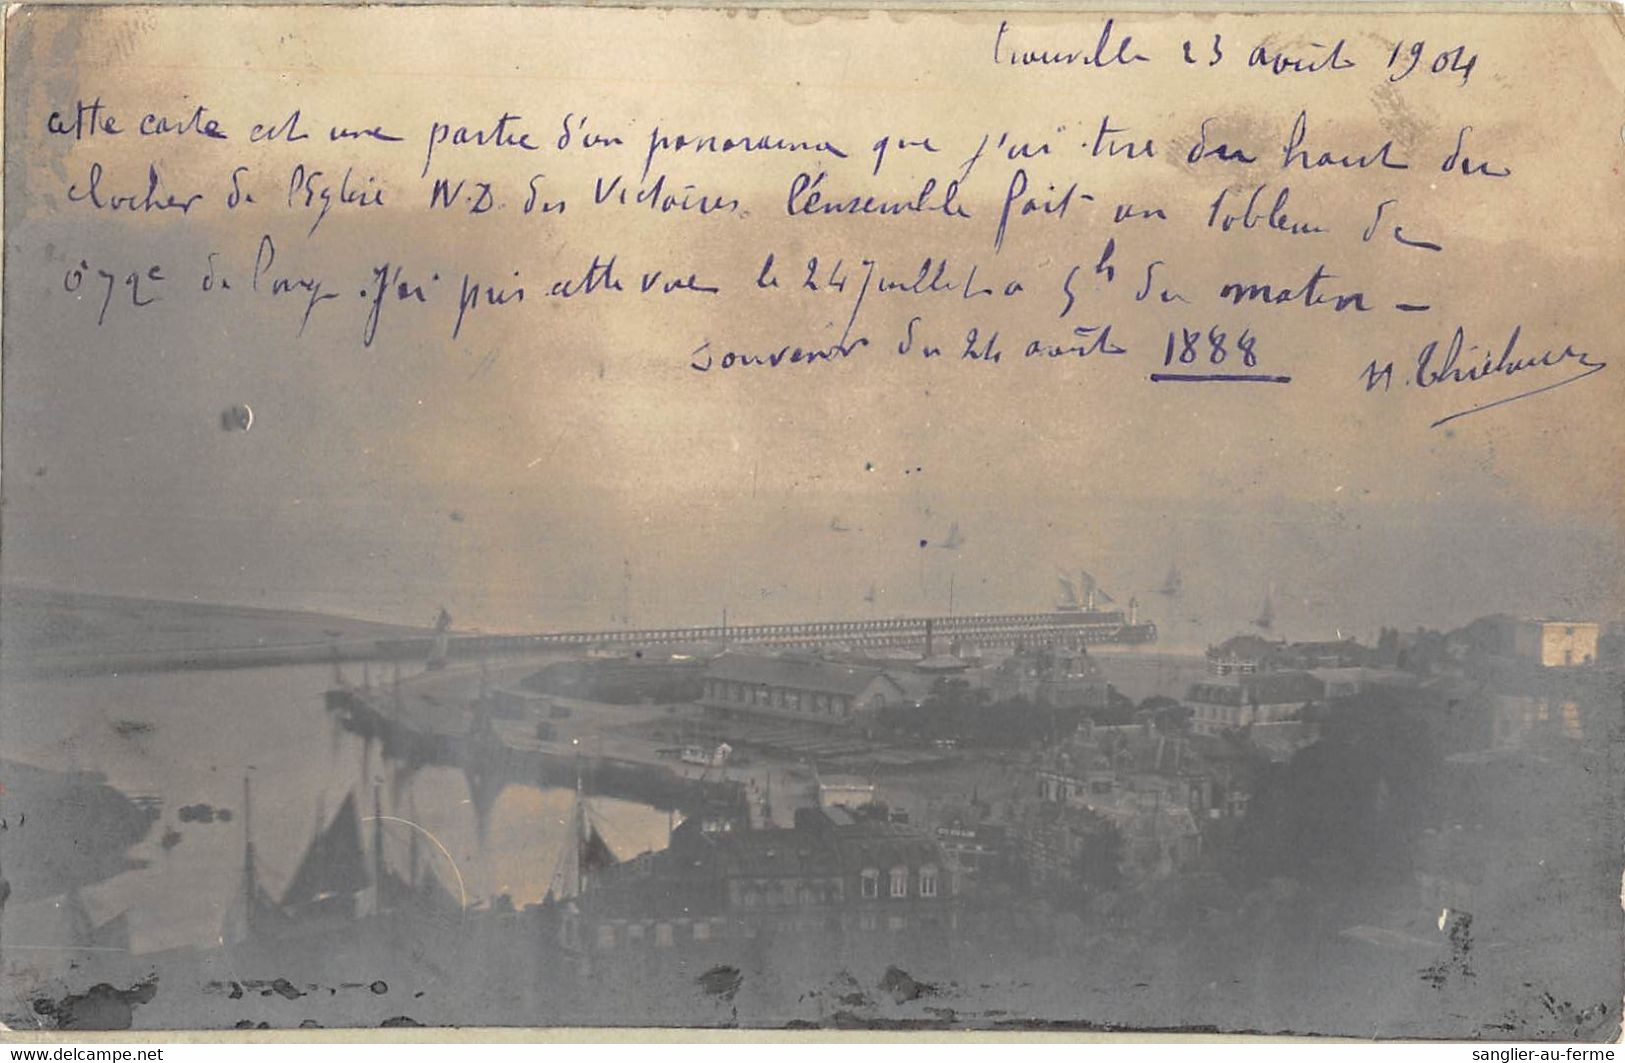 Trouville 23 août 1904
cette carte est une partie d'un panorama que j'ai tiré du haut du
clocher de l'Eglise N.D. des Victoires. l'ensemble fait un tableau de
de long. J'ai pris cette vue le 24 Juillet à 5h du matin –
souvenir du 24 août 1888
www.delcampe.net
sanglier-au-ferme